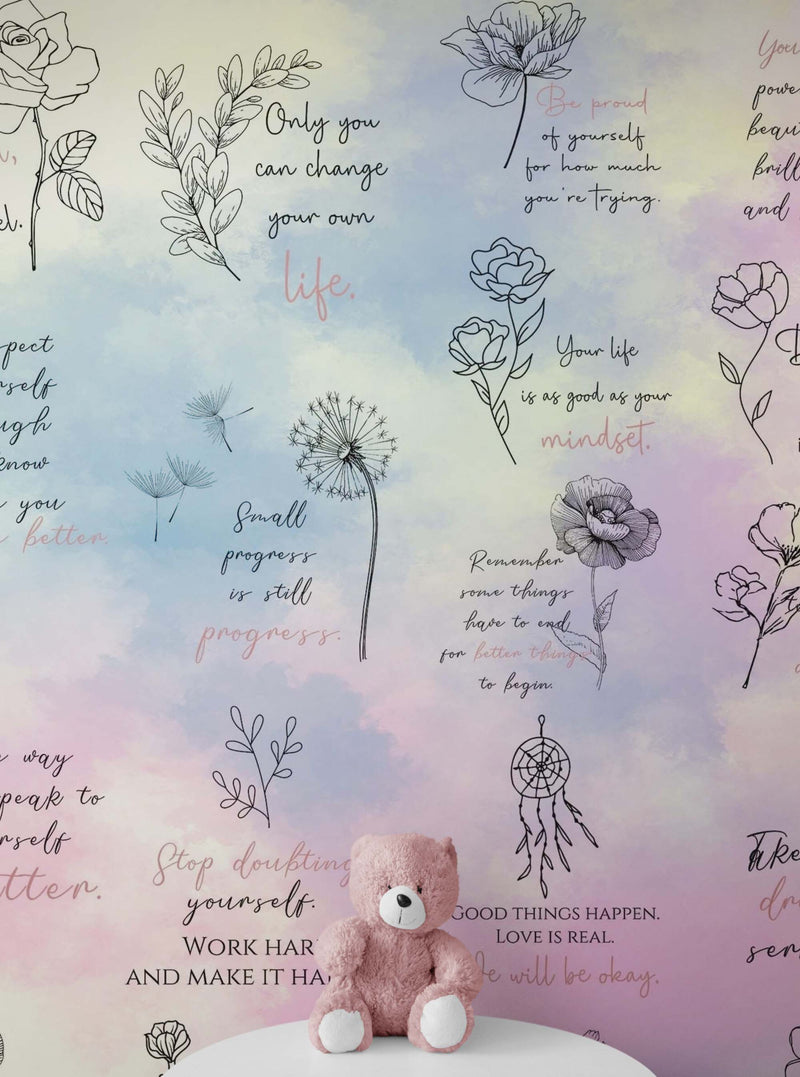 Only you
can change
your own
life.
Be proud
of yourself
for how much
you're trying.
and
Your life
is as good as your
mindset.
know
you
better.
Small
progress
is still
progress.
Remember
some things
have to end
for better things
to begin.
way
to
Stop doubting
yourself.
WORK HAR
AND MAKE IT HA
GOOD THINGS HAPPEN.
LOVE IS REAL.
We will be okay.
Take